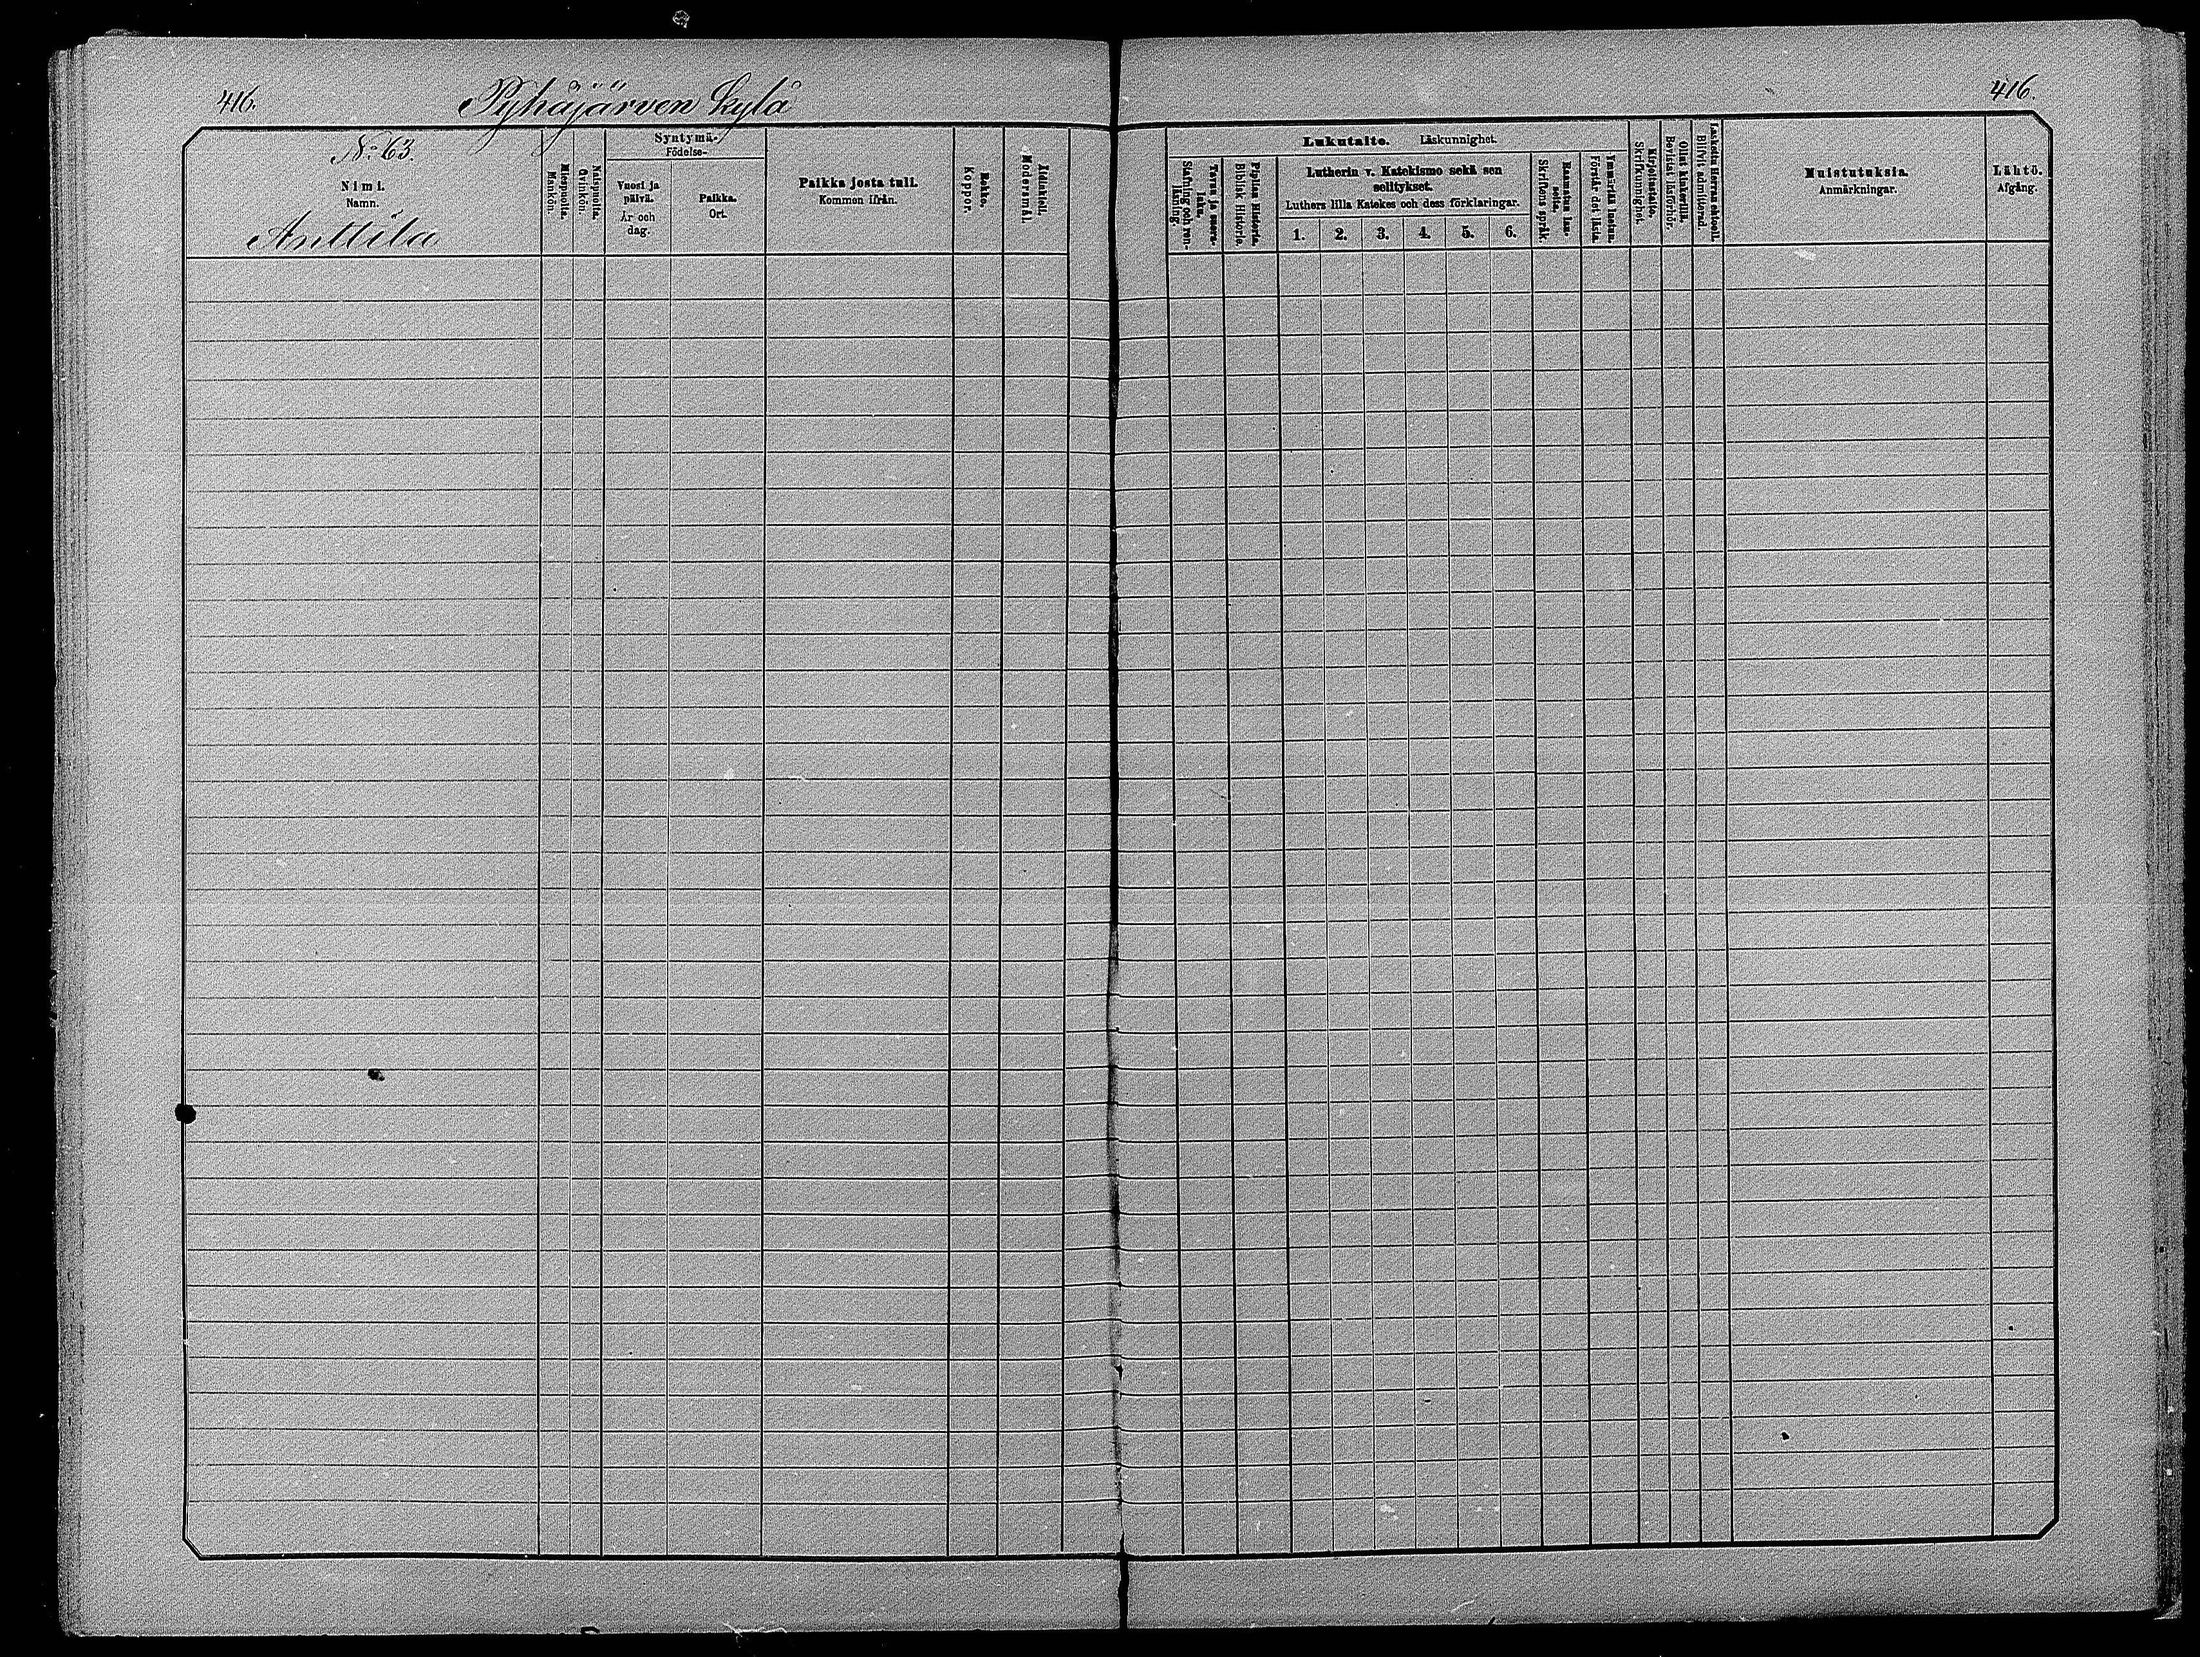 416.
Pyhäjärven kylä
416.
No 63.
Nimi.
Namn.
Anttila
Miespuolia.
Mankön.
Naispuolia.
Qvinkön.
Syntymä-
Födelse-
Vuosi ja
päivä.
År och
dag.
Paikka.
Ort.
Paikka josta tuli.
Kommen ifrån.
Rokko.
Koppor.
Äidinkieli.
Modersmål.
Lukutaito. Läskunnighet.
Tavuu ja suora-
luku.
Stafning och ren-
läsning.
Piplian Historia.
Biblisk Historie.
Lutherin v. Katekismo sekä sen
selitykset.
Luthers lilla Katekes och dess förklaringar.
1. 2. 3. 4. 5. 6.
Raamatun lau-
seita.
Skriftens språk.
Ymmärtää luetun.
Förstår det lästa.
Kirjoitustaito.
Skrifkunnighet.
Ollut kinkerillä.
Bevistat läsförhör.
Laskettu Herran ehtooll.
Blifvit admitterad.
Muistutuksia.
Anmärkningar.
Lähtö.
Afgång.